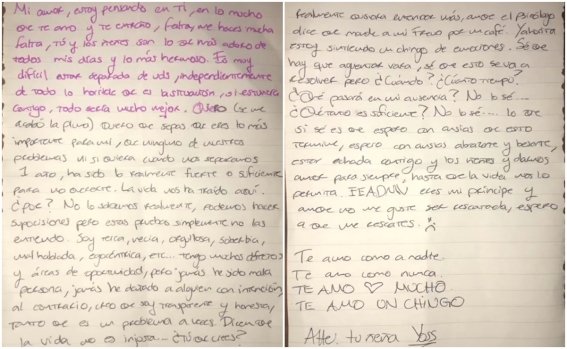 Mi amor, estoy pensando en Ti, en lo mucho
que te amo y te extraño, faltas, me haces mucha
falta, Tú y los nenes son lo que más adoro de
todos mis días y lo más hermoso. Es muy
difícil estar separada de uds, independientemente
de todo lo horrible que es la situación, si estuviera
contigo, todo sería mucho mejor. Quiero (se me
acabó la pluma) Quiero que sepas que eres lo más
importante para mi, que ninguno de nuestros
problemas ni siquiera cuando nos separamos
1 año, ha sido lo realmente fuerte o suficiente
para no quererte. La vida nos ha traído aquí.
¿Por? No lo sabemos realmente, podemos hacer
suposiciones pero estas pruebas simplemente no las
entiendo. Soy terca, necia, orgullosa, soberbia,
mal hablada, egocéntrica, etc... tengo muchos defectos
y áreas de oportunidad, pero jamás he sido mala
persona, jamás he dañado a alguien con intención,
al contrario, creo que soy transparente y honesta,
tanto que es un problema a veces. Dicen que
la vida no es injusta... ¿Tú que crees?
Realmente quisiera entender más, aunque el psicólogo
dice que mande a mi Freud por un café. Y ahorita
estoy sintiendo un chingo de emociones. Sé que
hay que aguantar vara, sé que esto se va a
resolver pero ¿Cuándo? ¿Cuánto tiempo?
¿Qué pasará en mi ausencia? No lo sé....
¿Qué tanto es suficiente? No lo sé.... lo que
si sé es que espero con ansias que esto
termine, espero con ansias abrazarte y besarte,
estar echada contigo y los nenes y darnos
amor para siempre, hasta que la vida nos lo
permita. EEADMN eres mi príncipe y
aunque no me guste ser rescatada, espero
a que me rescates.
Te amo como a nadie.
Te amo como nunca.
TE AMO ♡ MUCHO.
TE AMO UN CHINGO
Atte: tu nena Yoss